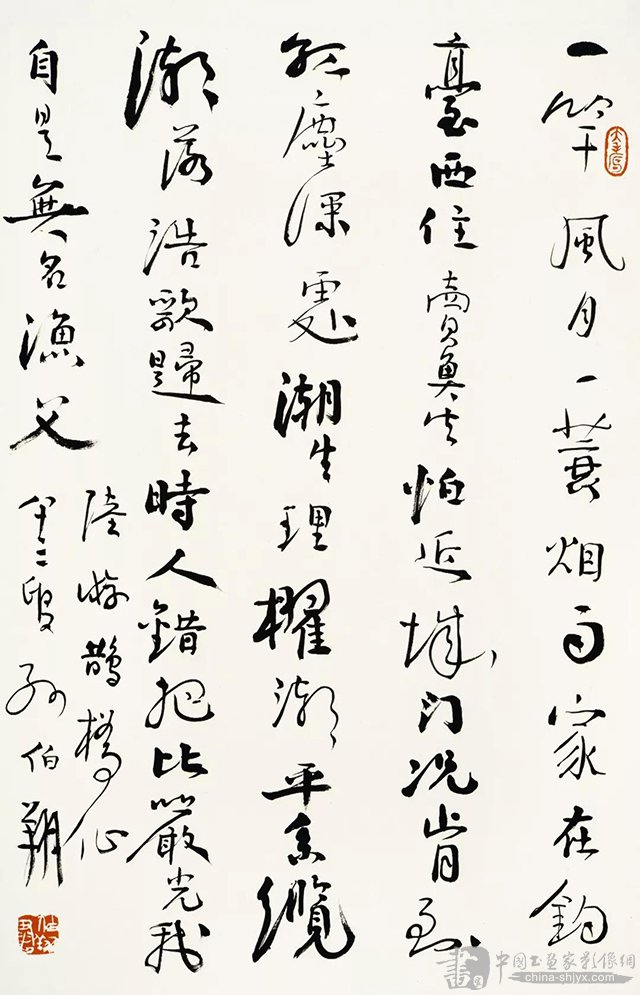 一竿風月一蓑烟雨家在釣
臺西住賣魚生怕近城门況肯到
紅塵深處潮生理櫂潮平系纜
潮落浩歌歸去時人錯把比嚴光我
自是無名漁父
陸游鵲橋仙
孙伯翔
書
中国书画家影像網
china-shjyx.com